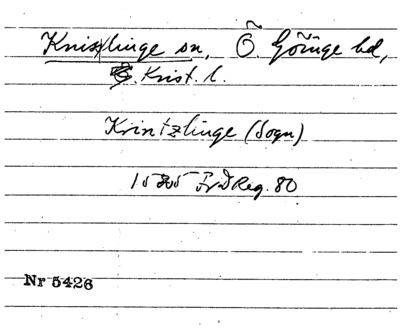 Knislinge sn, Ö. Göinge hd,
Krist. l.
Krintzlinge (Sogn)
Reg. 80
Nr 5426